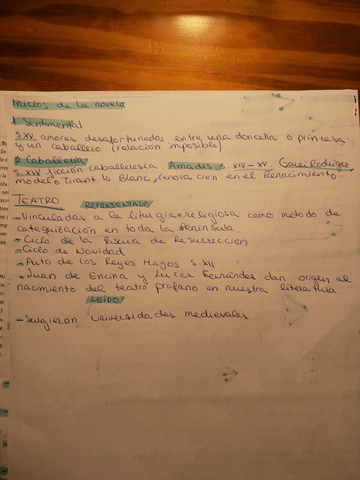 Inicios de la novela
1. Sentimental
S.XV amores desafortunados entre una doncella o princesa
y un caballero (relación imposible)
2. Caballeria
S.XIV ficción caballeresca Amadis s. XIV-XV. Garci Rodriguez
modelo Tirant lo Blanc, renovación en el Renacimiento.
TEATRO REPRESENTADO
- Vinculadas a la liturgia religiosa como método de
categuización en toda la península
- Ciclo de la Pascua de Resurrección
- Ciclo de Navidad
- Auto de los Reyes Magos S.XII
- Juan de Encina y Lucas Fernández dan origen al
nacimiento del teatro profano en nuestra literatura.
LEÍDO
- Surgieron universidades medievales